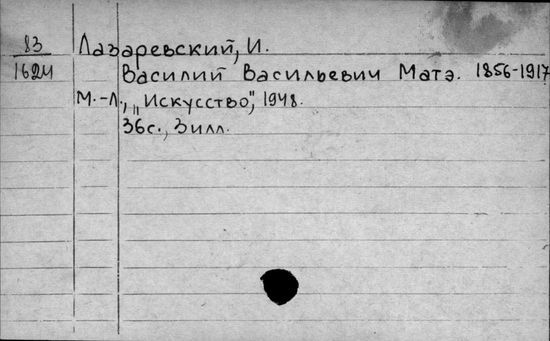 83 Лазаревский, И.
1624 Василий Васильевич Матэ. 1856-1917
М.-Л., „Искусство", 1948.
36с., 3илл.